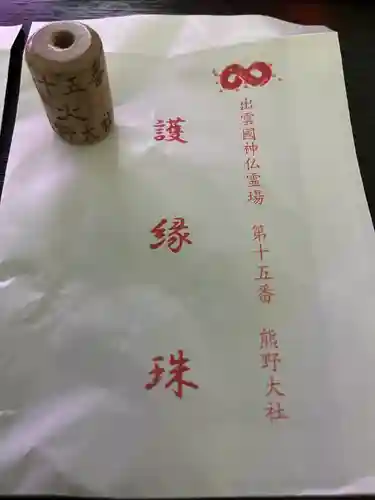 出雲國神仏霊場　第十五番　熊野大社
護縁珠
十五番
火
野大社